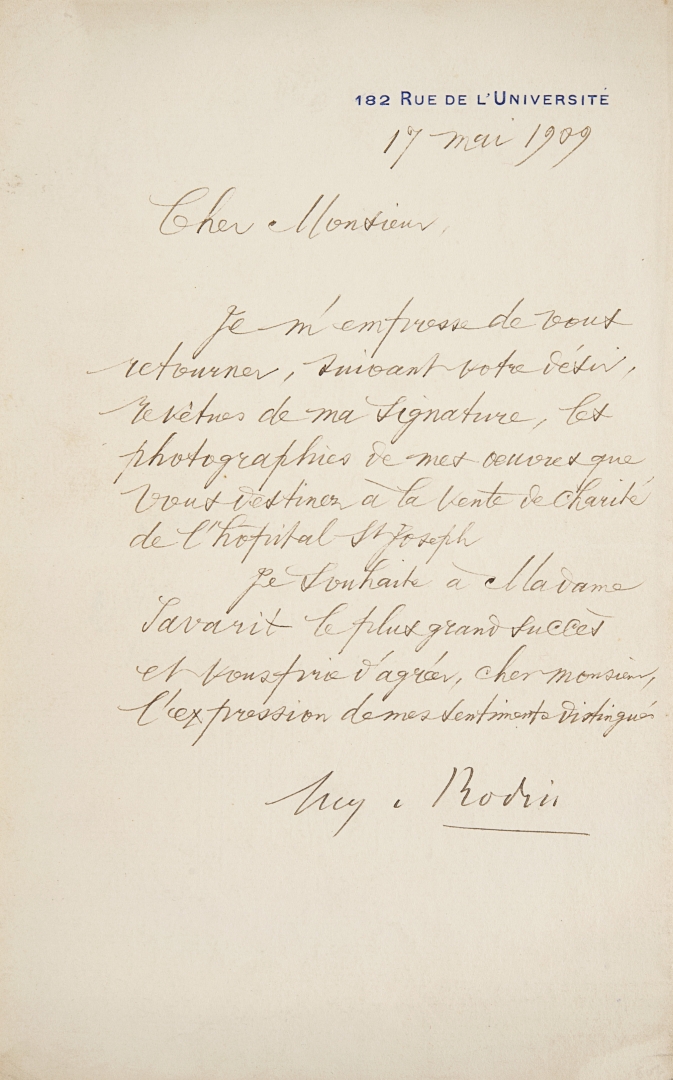 182 RUE DE L'UNIVERSITÉ
17 mai 1909
Cher Monsieur,
Je m'empresse de vous
retourner, suivant votre désir,
revêtues de ma signature, les
photographies de mes œuvres que
vous destinez à la vente de charité
de l'hopital St Joseph
Je souhaite à Madame
Savarit le plus grand succès
et vous prie d'agréer, cher monsieur,
l'expression de mes sentiments distingués
Aug. Rodin